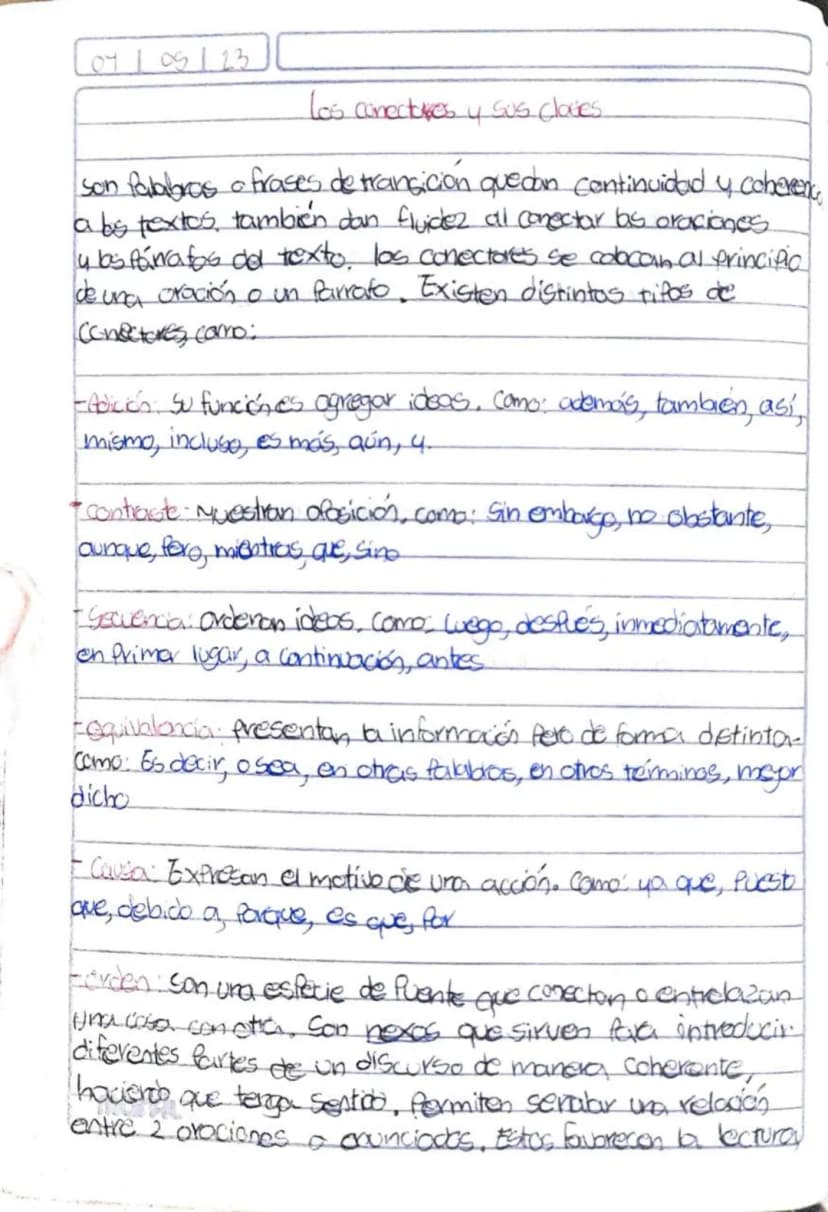 07 | 09 | 23
Los conectores y sus clases
son palabras o frases de transición que dan continuidad y coherenc
a los textos, también dan fluidez al conectar las oraciones
y los párrafos del texto. los conectores se colocan al principio
de una oración o un parrafo. Existen distintos tipos de
conectores, como:
-Adición: Su función es agregar ideas. Como: además, también, así,
mismo, incluso, es más, aún, y.
- contraste: Muestran oposición, como: Sin embargo, no obstante,
aunque, pero, mientras, que, sino
- Secuencia: Ordenan ideas. Como: Luego, después, inmediatamente,
en primer lugar, a continuación, antes
- equivalencia: Presentan la información pero de forma distinta.
Como: Es decir, o sea, en otras palabras, en otros términos, mejor
dicho
- Causa: Expresan el motivo de una acción. Como: ya que, puesto
que, debido a, porque, es que, por
- orden: Son una especie de puente que conectan o entrelazan
una cosa con otra. Son nexos que sirven para introducir
diferentes partes de un discurso de manera coherente,
haciendo que tenga sentido. Permiten señalar una relación
entre 2 oraciones o enunciados. Estos favorecen la lectura,